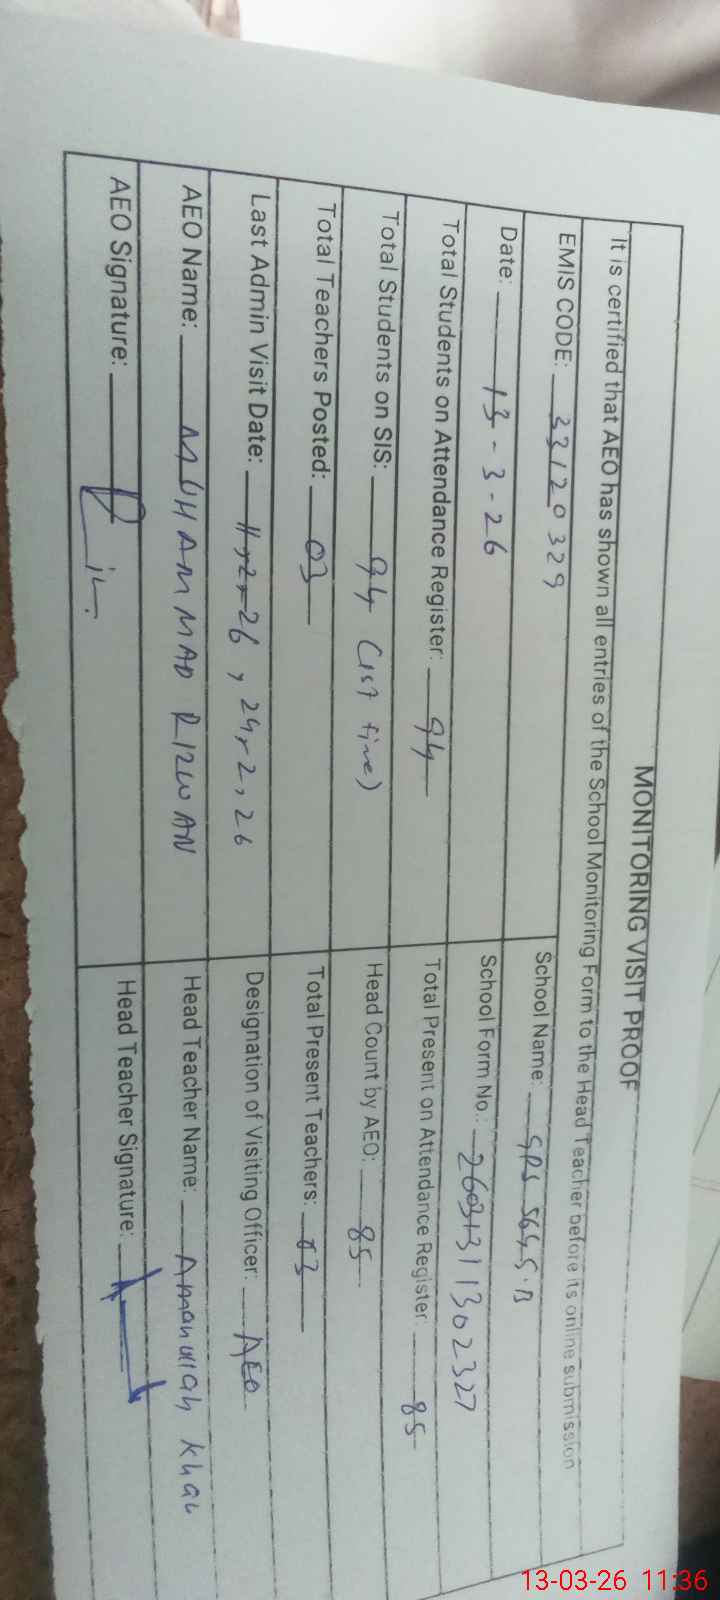 MONITORING VISIT PROOF
It is certified that AEO has shown all entries of the School Monitoring Form to the Head Teacher before its online submission
EMIS CODE: 33120329
School Name: GPS 564 GB
Date: 13-3-26
School Form No.: 26031311302327
Total Students on Attendance Register: 94
Total Present on Attendance Register: 85
Total Students on SIS: 94 (1st five)
Head Count by AEO: 85
Total Teachers Posted: 03
Total Present Teachers: 03
Last Admin Visit Date: 11,2,26, 24,2,26
Designation of Visiting Officer: AEO
AEO Name: MUHAMMAD RIZWAN
Head Teacher Name: Amanullah Khan
AEO Signature:
Head Teacher Signature:
13-03-26 11:36